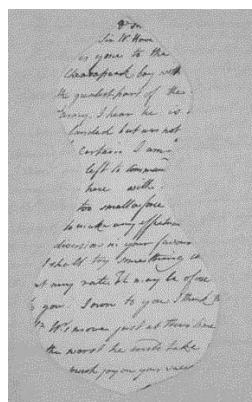 You
Sir W. Howe
is gone to the
Chesapeak bay with
the greatest part of the
army. I hear he is
landed but am not
certain. I am
left to command
here with
too small a force
to make any effectual
diversion in your favour
I shall try something
at any rate. It may be of use
to you. I own to you I think
W's move just at this time
the worst he could take
much joy on your